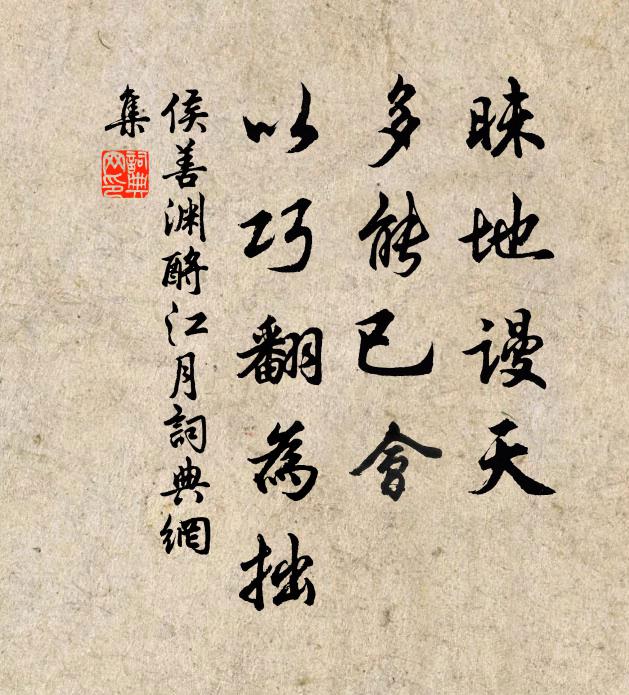 昧地謾天
多能已會
以巧翻為拙
侯善淵酹江月詞典網
集
詞典網印